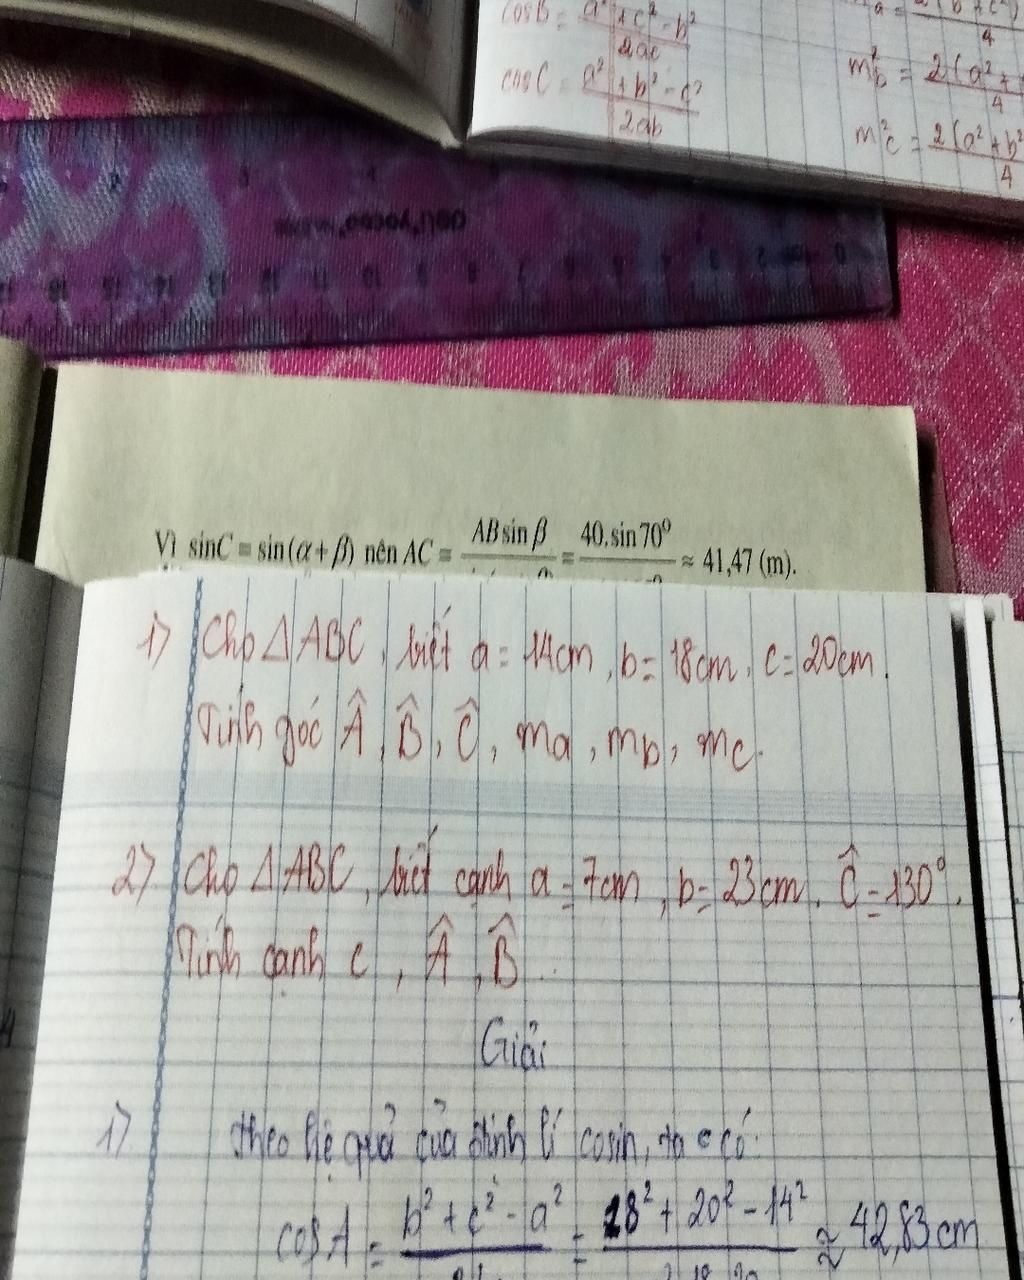 cosB = a² + c² - b² / 2ac
cosC = a² + b² - c² / 2ab
4
m²b = 2(a² + / 4
m²c = 2(a² + b² / 4
Vì sinC = sin(α + β) nên AC = AB sin β / = 40.sin70⁰ / ≈ 41,47 (m).
1) Cho △ABC, biết a = 14cm, b = 18cm, c = 20cm.
Tính góc Â, B̂, Ĉ, ma, mb, mc.
2) Cho △ABC, biết cạnh a = 7cm, b = 23cm. Ĉ = 130°.
Tính cạnh c, Â, B̂ ..
Giải
1) theo hệ quả của định lí cosin, ta có:
cosA = b² + c² - a² / = 18² + 20² - 14² / ≈ 42,83cm